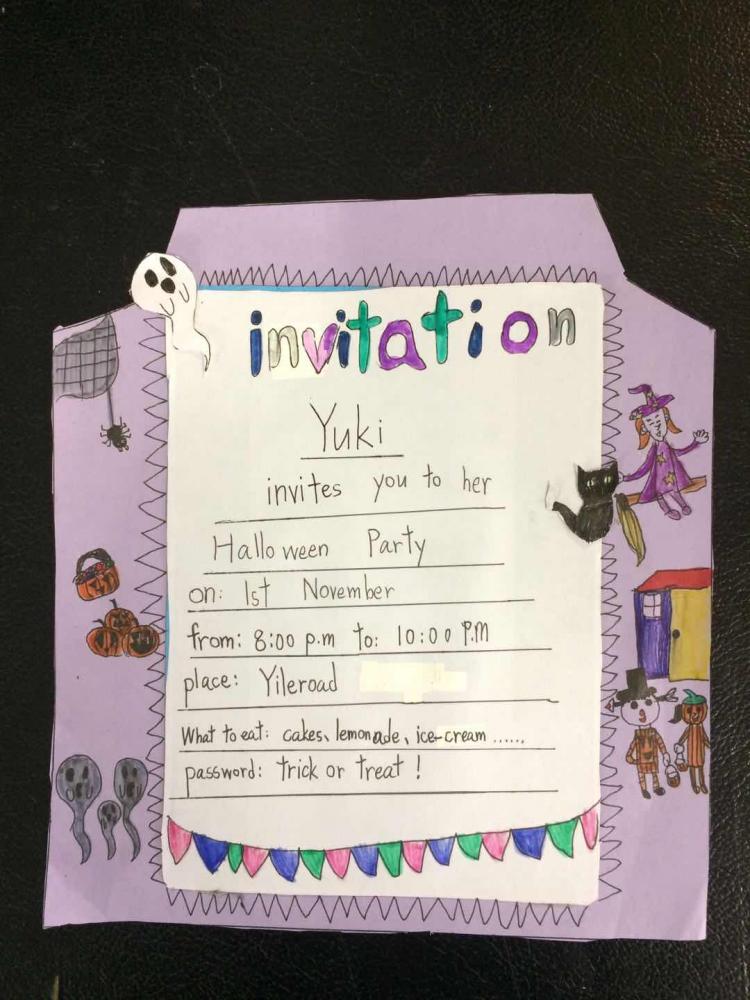 invitation
Yuki
invites you to her
Halloween Party
on: 1st November
from: 8:00 p.m to: 10:00 P.M
place: Yileroad
What to eat: cakes、lemonade、ice-cream ......
password: trick or treat !